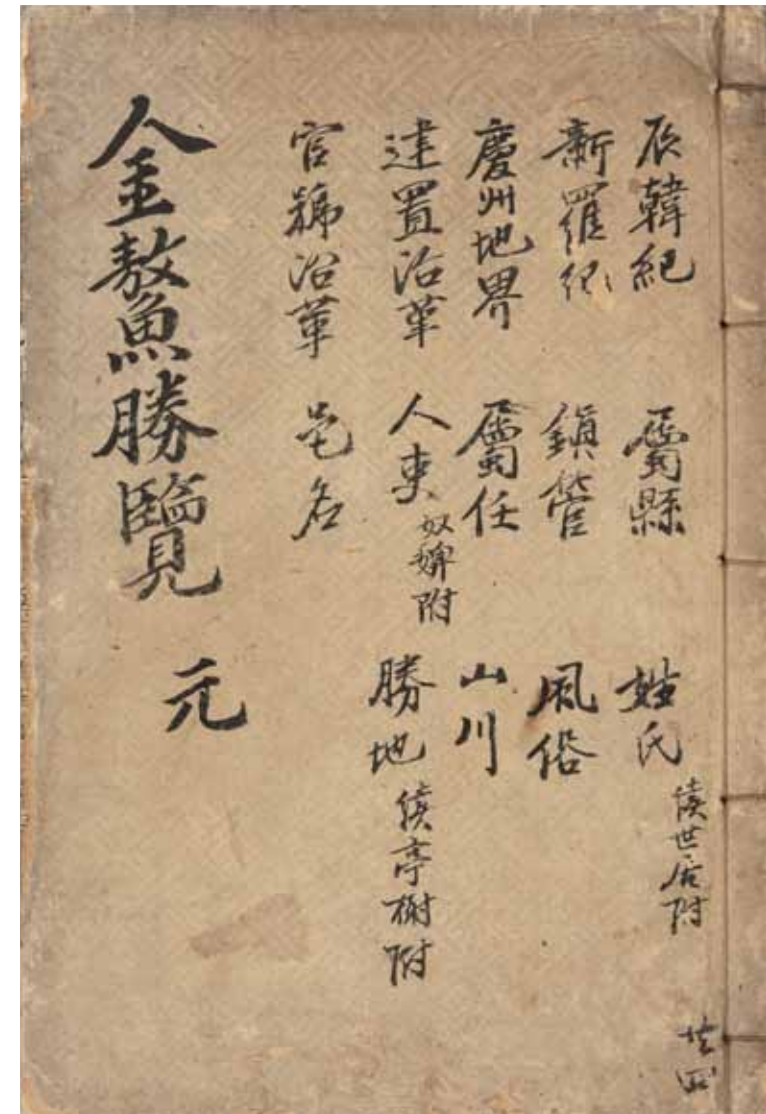 辰韓紀 屬縣 姓氏 續世居附
新羅紀 鎭營 風俗
慶州地界 屬任 山川
建置沿革 人吏 奴婢附 勝地 續亭榭附
官號沿革 邑名
金鰲勝覽 元
共四